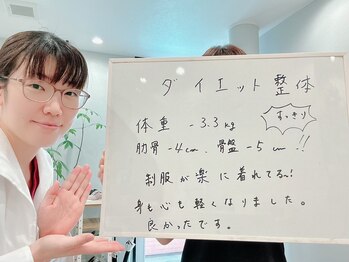 ダイエット整体
体重 -3.3kg
すっきり
肋骨 -4cm、骨盤 -5cm!!
制服が楽に着れてる〜!
身も心も軽くなりました。
良かったです。